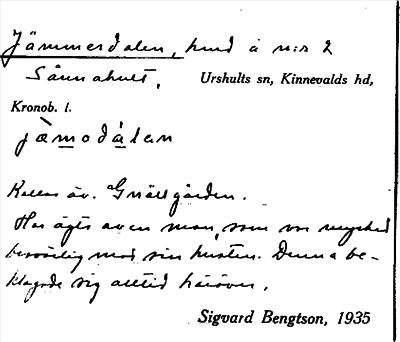 Jämmerdalen, hmd å n:r 2
Sånnahult, Urshults sn, Kinnevalds hd,
Kronob. l.
jæmodålan
Kallas äv. Gnällgården.
Har ägts av en man, som var mycket
besvärlig mot sin hustru. Denna be-
klagade sig alltid häröver.
Sigvard Bengtson, 1935